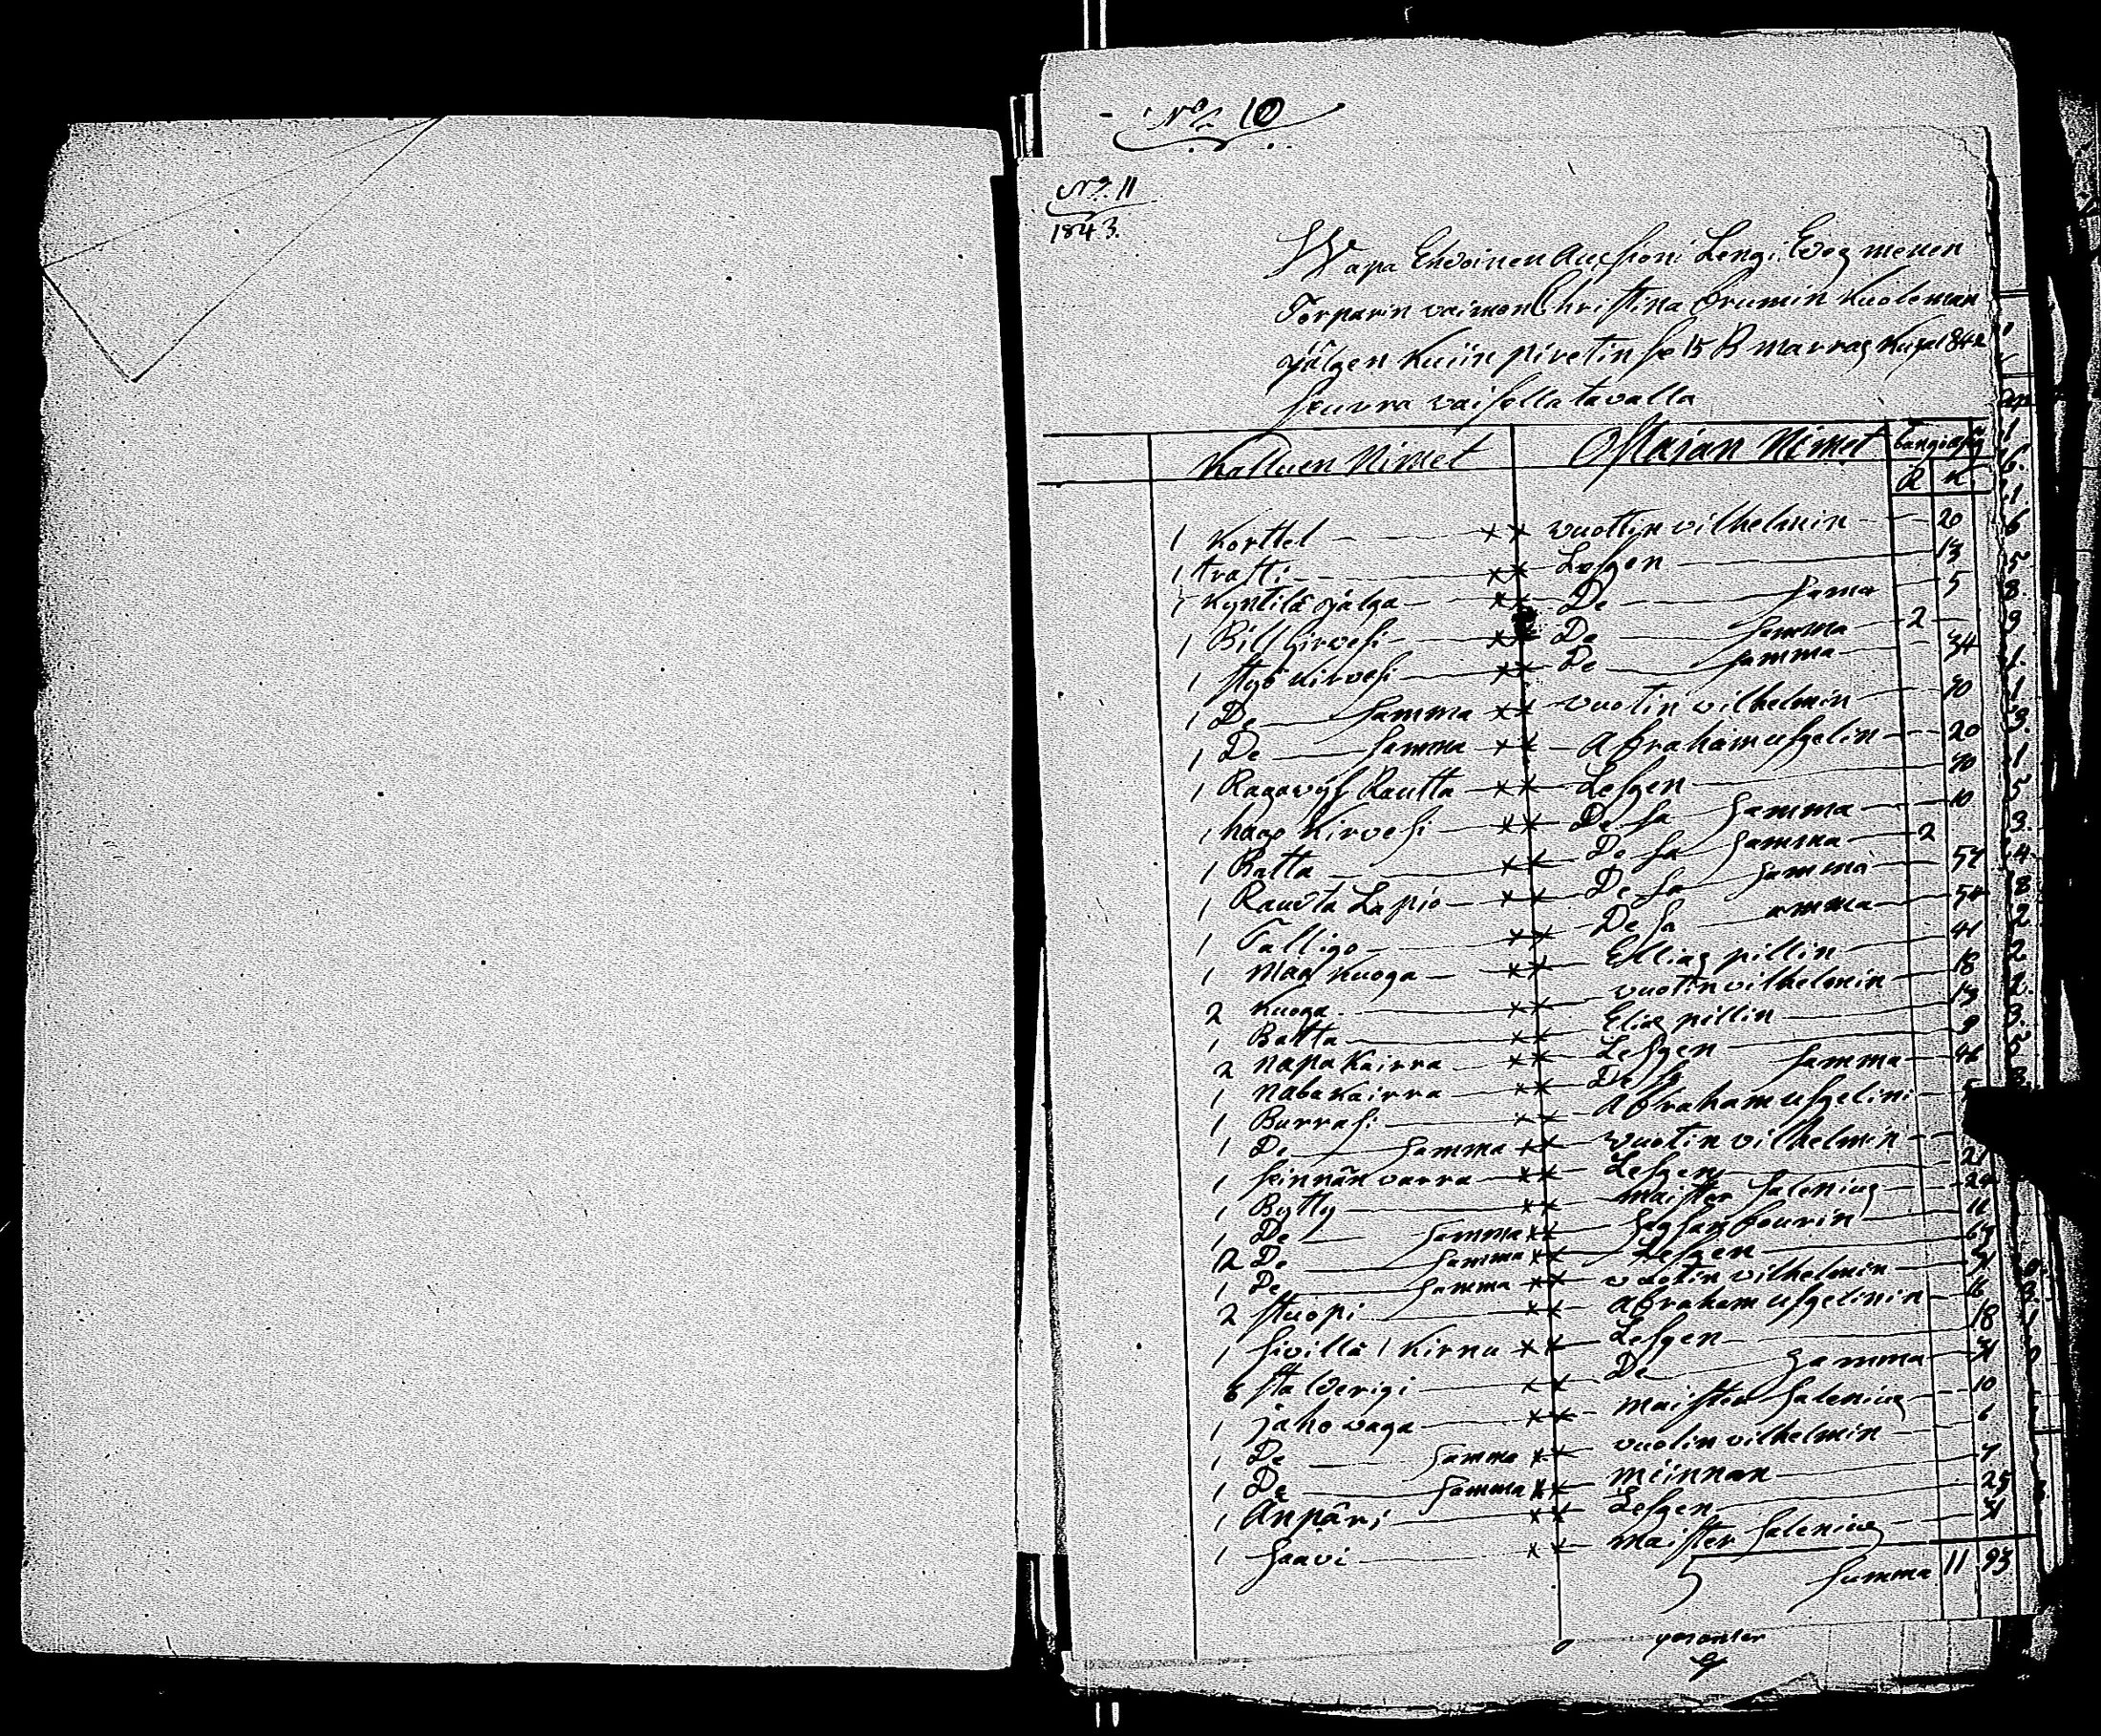 No 10
No 11
1843.
Wapa Ehdoinen Aucsioni Lengi Evesmenen
Torparin vaimon Christina Brumin Kuoleman
jälgen Kuiin pivetin se 15 P marras Kuyal 842
seuvra vaisella tavalla
Kalluen Nimet Ostajan Nimet bangi
R K
1 Korttel vuottin vilhelmin 20
1 tratti Lesgen 13
1 Kyntilä jalga De sama 5
1 Bill Girvesi De samma 2
1 styö Kirvesi De samma 34
1 De samma vuotin vilhelmin 70
1 De samma Abraham usgelin 20
1 Ragavys Rautta Lesgen 70
1 hago Kirvesi De sa samma 10
1 Patta De sa samma 2
1 Raudta Lapio De sa samma 57
1 Talligo De sa amma 54
1 Maa Kuoga Ellias pillin 41
2 Kuoga vuotin vilhelmin 18
1 Batta Elias pillin 13
2 napa Kairra Lesgen 9
1 naba Kairra De sa samma 46
1 Burrasi Abraham usgelini 5
1 De samma vuotin vilhelmin
1 seinnän varra Lesgen 21
1 Bytty maister salenius 24
1 De samma 11
2 De samma Lesgen 63
1 De samma vuotin vilhelmin 71
2 stuopi Abraham usgelinin 16
1 sivillä 1 Kirnu Lesgen 18
6 stalderigi De samma 71
1 jaho vaga maister salenius 10
1 De samma vuotin vilhelmin 6
1 De samma meinnan 7
1 Änpäri Lesgen 25
1 saavi maister salenius 71
summa 11 93